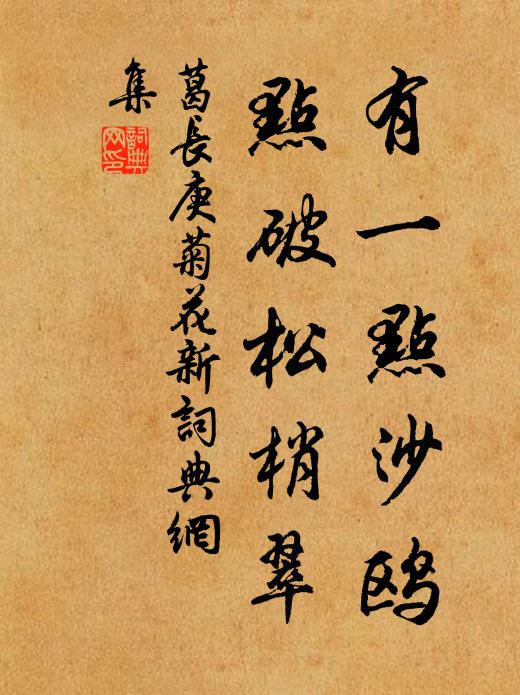 有一點沙鸥
點破松梢翠
葛長庚菊花新詞典網
集
詞典
网印